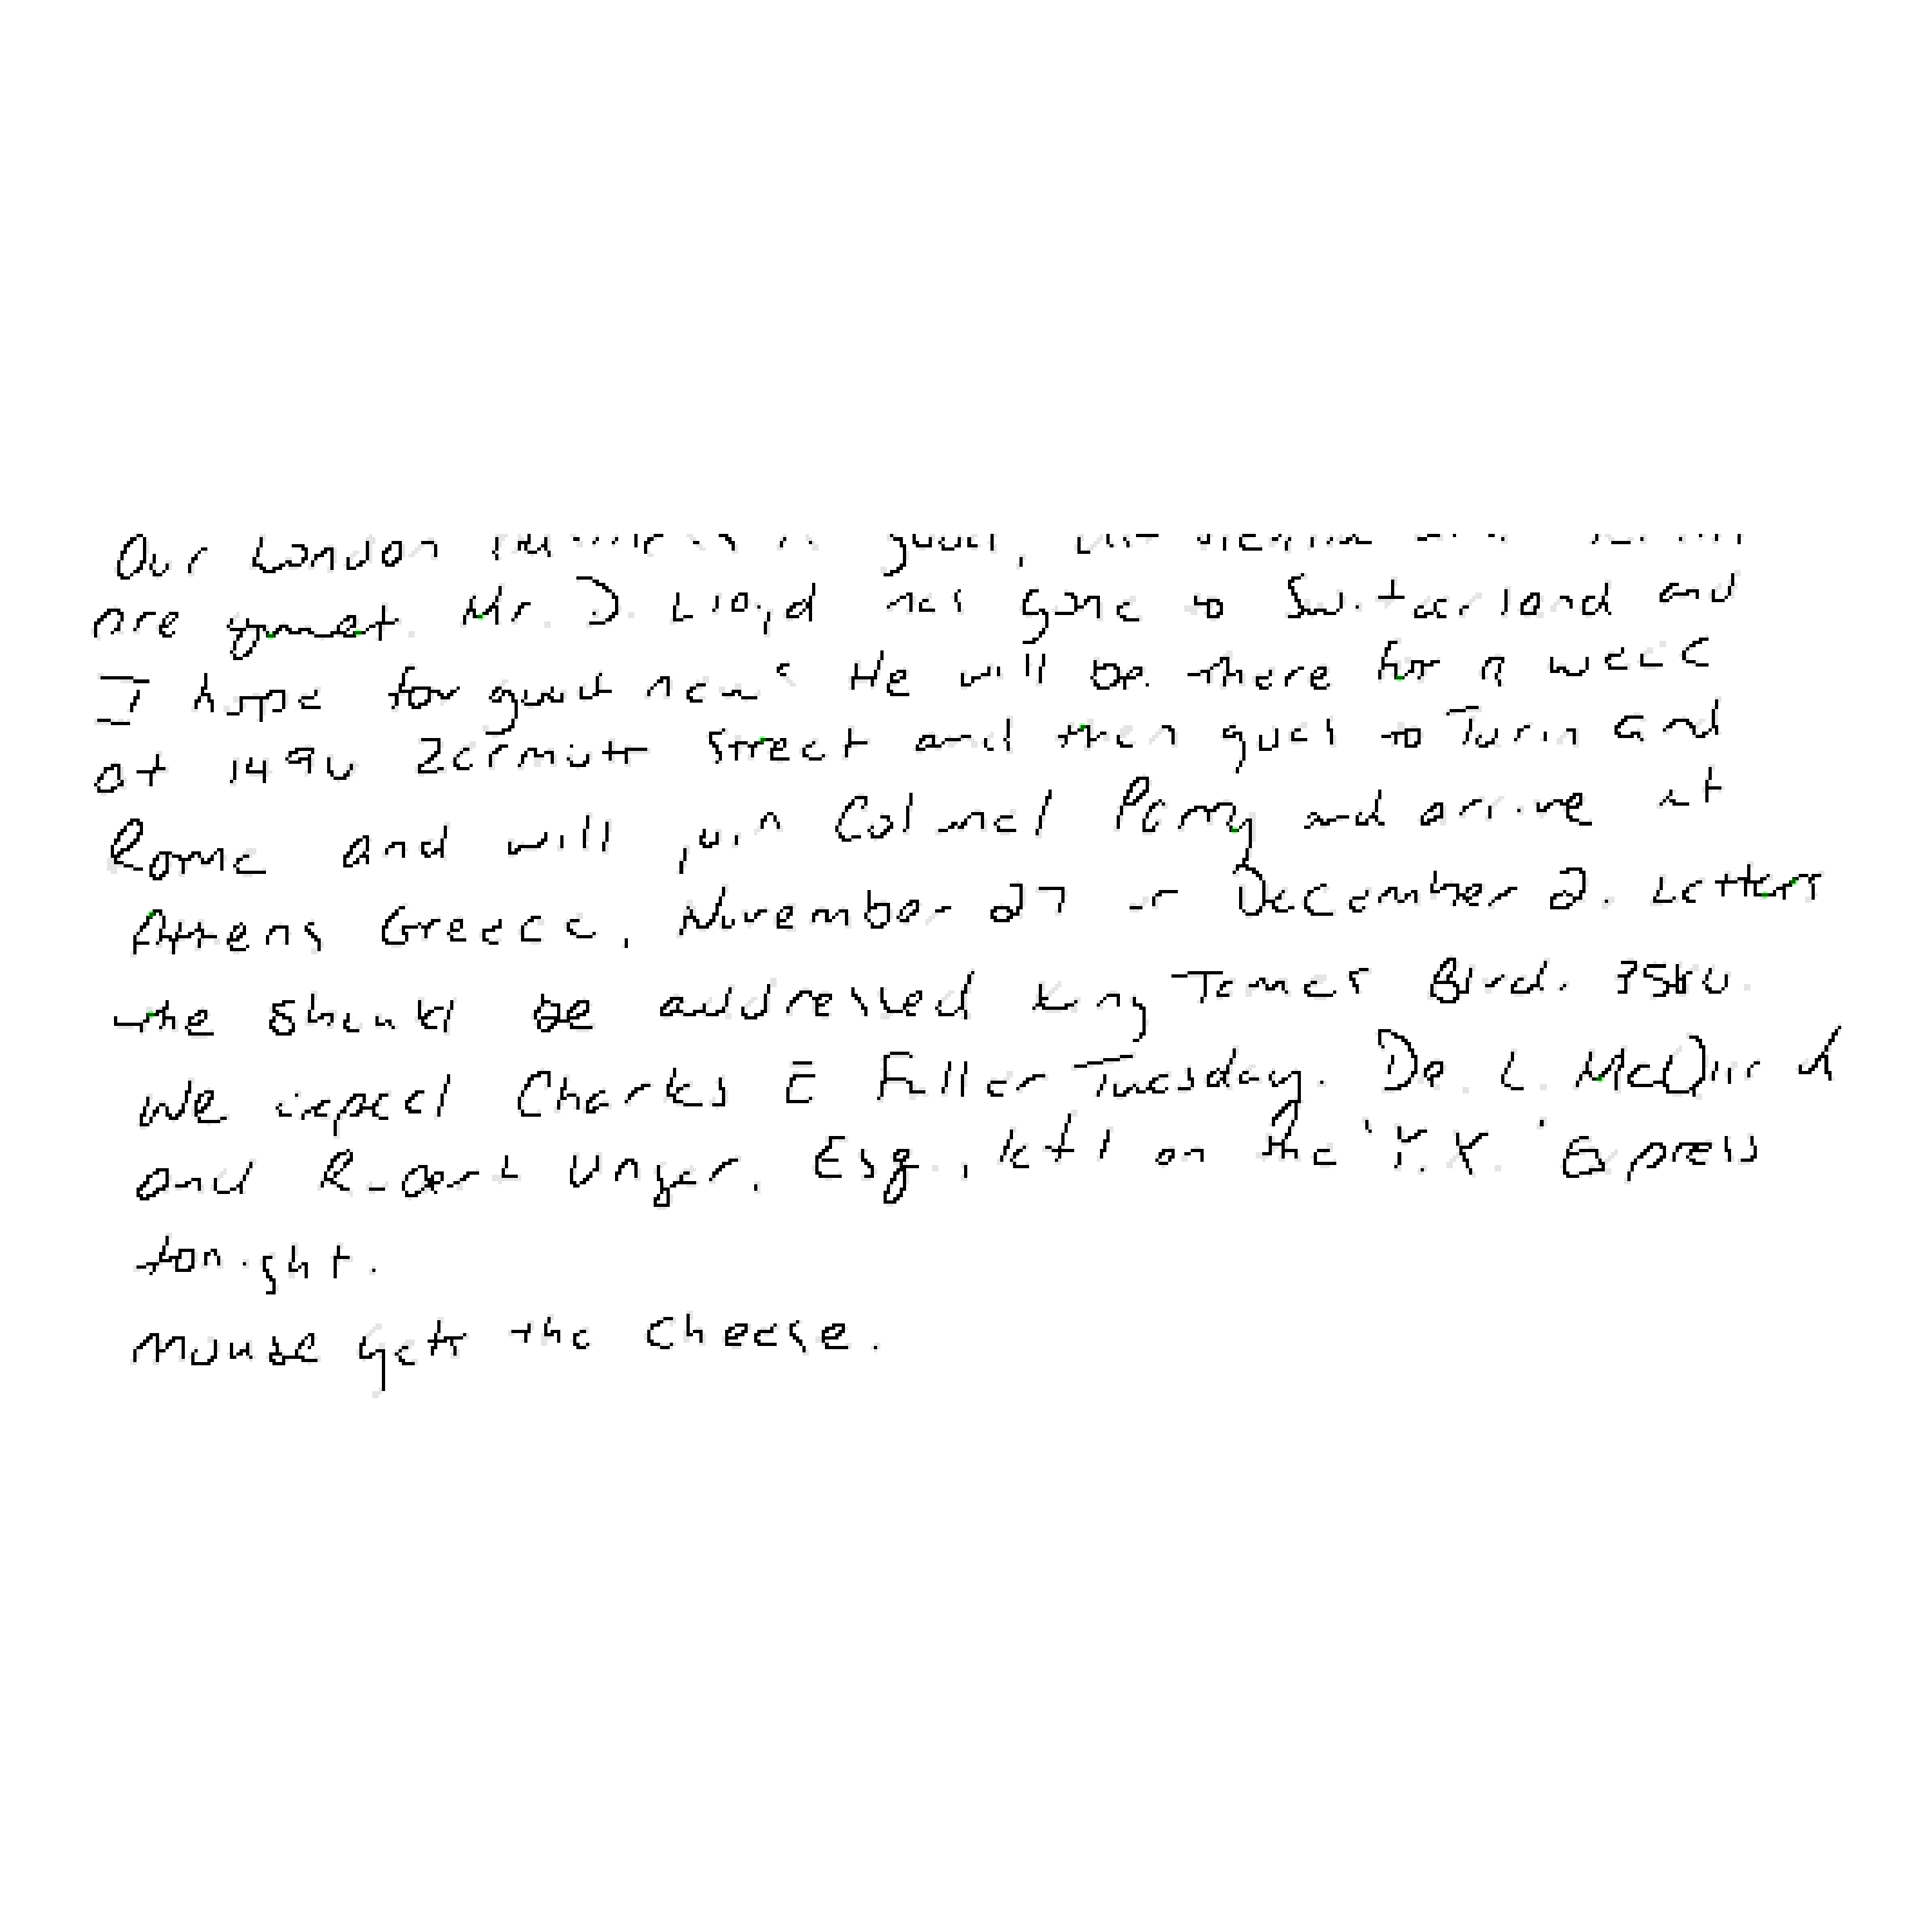 Our London business is good, but Vienna and Berlin
are quiet. Mr. D. Lloyd has gone to Switzerland and
I hope for good news He will be there for a week
at 1490 Zermutt Street and then goes to Turin and
Rome and will join Colonel Parry and arrive at
Athens Greece, November 27 or December 2. Letters
the should be addressed King James Blvd. 3580.
We expect Charles E Fuller Tuesday. Dr. L. McQuaid
and Robert Unger, Esq., left on the 'Y.X.' Express
tonight.
Mouse gets the Cheese.